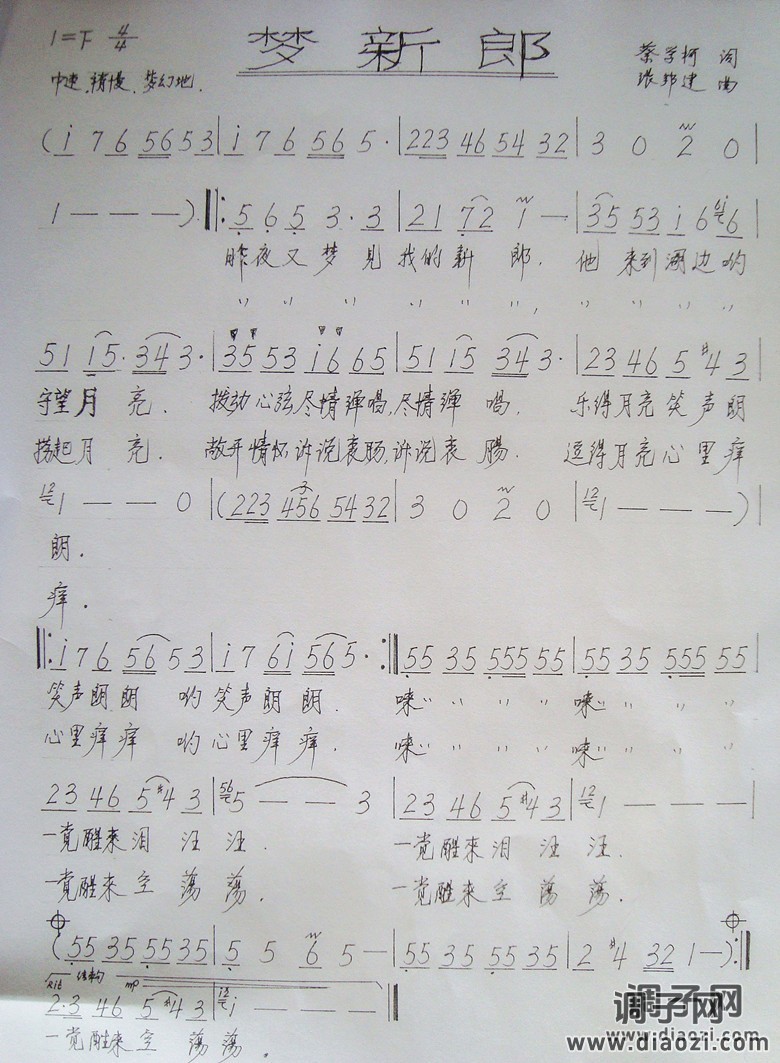 1=F 4/4
梦新郎
蔡学柯 词
中速.稍慢.梦幻地.
张邦建 曲
(i 7 6 56 53 | i 7 6 56 5· | 223 46 54 32 | 3 0 2 0
1 — — —) ‖: 5 6 5 3·3 | 21 72 1 — | 35 53 i 6 6i 6
昨夜又梦见我的新郎. 他来到湖边哟
〃 〃 〃 〃 〃 〃 〃 , 〃 〃 〃 〃 〃
51 i5· 34 3· | 35 53 i6 65 | 51 i5 34 3· | 23 46 5 #4 3
守望月亮. 拨动心弦,尽情弹唱,尽情弹唱. 乐得月亮笑声朗
捞起月亮. 敞开情怀,诉说衷肠,诉说衷肠. 逗得月亮心里痒
12 1 — — 0 | (223 456 54 32 | 3 0 2 0 | 12 1 — — —)
朗.
痒.
‖: i 7 6 56 53 | i 7 6i 56 5· :‖ 55 35 555 55 | 55 35 555 55
笑声朗朗 哟笑声朗朗. 唻〃 〃 〃 〃 唻〃 〃 〃 〃
心里痒痒 哟心里痒痒. 唻〃 〃 〃 〃 唻〃 〃 〃 〃
23 46 5 #4 3 | 56 5 — — 3 | 23 46 5 #4 3 | 12 1 — — —
一觉醒来泪汪汪. 一觉醒来泪汪汪.
一觉醒来空荡荡. 一觉醒来空荡荡.
(55 35 55 35 | 5 5 6 5 — | 55 35 55 35 | 2 #4 32 1 —) :‖
Rit 结束句 mp
2·3 46 5 #4 3 | 12 i — — —
一觉醒来空荡荡.
调子网
www.diaozi.com